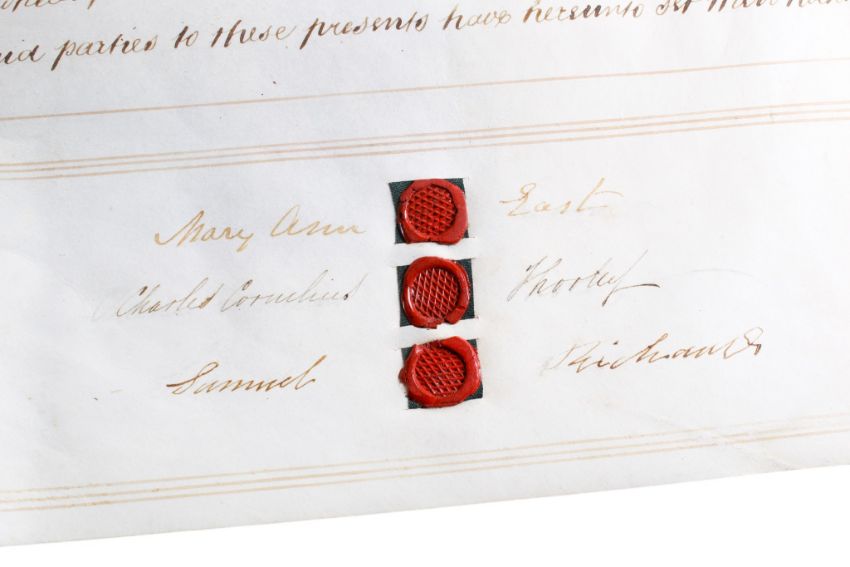 parties to these presents have hereunto set their
Mary Ann East
Charles Cornelius Thorley
Samuel Richards